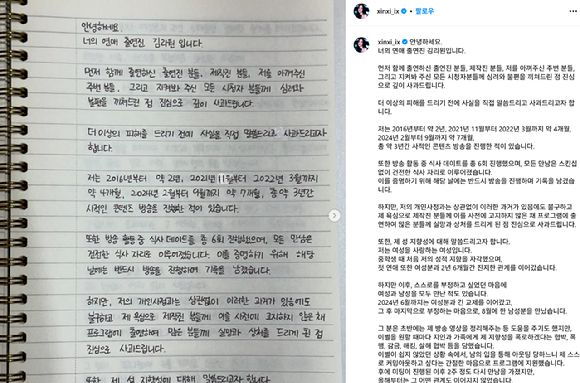 안녕하세요.
너의 연애 출연진 김리원 입니다.
먼저 함께 출연하신 출연진 분들, 제작진 분들, 저를 아껴주신
주변 분들, 그리고 지켜봐 주신 모든 시청자 분들께 심려와
불편을 끼쳐드린 점 진심으로 깊이 사과드립니다.
더 이상의 피해를 드리기 전에 사실을 직접 말씀드리고 사과드리고자
합니다.
저는 2016년부터 약 2년, 2021년 11월부터 2022년 3월까지
약 4개월, 2024년 2월부터 9월까지 약 7개월, 총 약 3년간
사적인 콘텐츠 방송을 진행한 적이 있습니다.
또한 방송 활동 중 식사 데이트를 총 6회 진행했으며, 모든 만남은
건전한 식사 자리로 이루어졌습니다. 이를 증명하기 위해 해당
날에는 반드시 방송을 진행하며 기록을 남겼습니다.
하지만, 저의 개인사정과는 상관없이 이러한 과거가 있음에도
불구하고 제 욕심으로 제작진 분들께 이를 사전에 고지하지 않은 채
프로그램에 출연하여 많은 분들께 실망과 상처를 드리게 된 점
진심으로 사과드립니다.
또한, 제 성 지향성에 대해 말씀드리고자 합니다.
xinxi_ix • 팔로우
xinxi_ix 안녕하세요.
너의 연애 출연진 김리원입니다.
먼저 함께 출연하신 출연진 분들, 제작진 분들, 저를 아껴주신 주변 분들,
그리고 지켜봐 주신 모든 시청자분들께 심려와 불편을 끼쳐드린 점 진심
으로 깊이 사과드립니다.
더 이상의 피해를 드리기 전에 사실을 직접 말씀드리고 사과드리고자 합니다.
저는 2016년부터 약 2년, 2021년 11월부터 2022년 3월까지 약 4개월,
2024년 2월부터 9월까지 약 7개월,
총 약 3년간 사적인 콘텐츠 방송을 진행한 적이 있습니다.
또한 방송 활동 중 식사 데이트를 총 6회 진행했으며, 모든 만남은 스킨십
없이 건전한 식사 자리로 이루어졌습니다.
이를 증명하기 위해 해당 날에는 반드시 방송을 진행하며 기록을 남겼습니다.
하지만, 저의 개인사정과는 상관없이 이러한 과거가 있음에도 불구하고
제 욕심으로 제작진 분들께 이를 사전에 고지하지 않은 채 프로그램에 출
연하여 많은 분들께 실망과 상처를 드리게 된 점 진심으로 사과드립니다.
또한, 제 성 지향성에 대해 말씀드리고자 합니다.
저는 여성을 사랑하는 여성입니다.
중학생 때 처음 저의 성적 지향을 자각했으며,
첫 연애 또한 여성분과 2년 6개월간 진지한 관계를 이어갔습니다.
하지만 이후, 스스로를 부정하고 싶었던 마음에
여성과 남성을 모두 만난 적도 있습니다.
2024년 6월까지는 여성분과 긴 교제를 이어왔고,
그 후 마지막으로 부정하는 마음으로, 8월에 한 남성분을 만났습니다.
그 분은 초반에는 제 방송 영상을 정리해주는 등 도움을 주기도 했지만,
이별을 원할 때마다 지인과 가족에게 제 지향성을 폭로하겠다는 협박, 폭
행, 감금, 해킹, 살해 협박 등을 당했습니다.
이별이 쉽지 않았던 상황 속에서, 남의 입을 통해 아웃팅 당하느니 제 스스
로 커밍아웃하고 싶다는 간절한 마음으로 프로그램에 지원했습니다.
후에 미팅이 진행된 이후 2주 정도 다시 만남을 가졌지만,
올해부터는 그 어떤 관계도 이어지지 않았습니다.